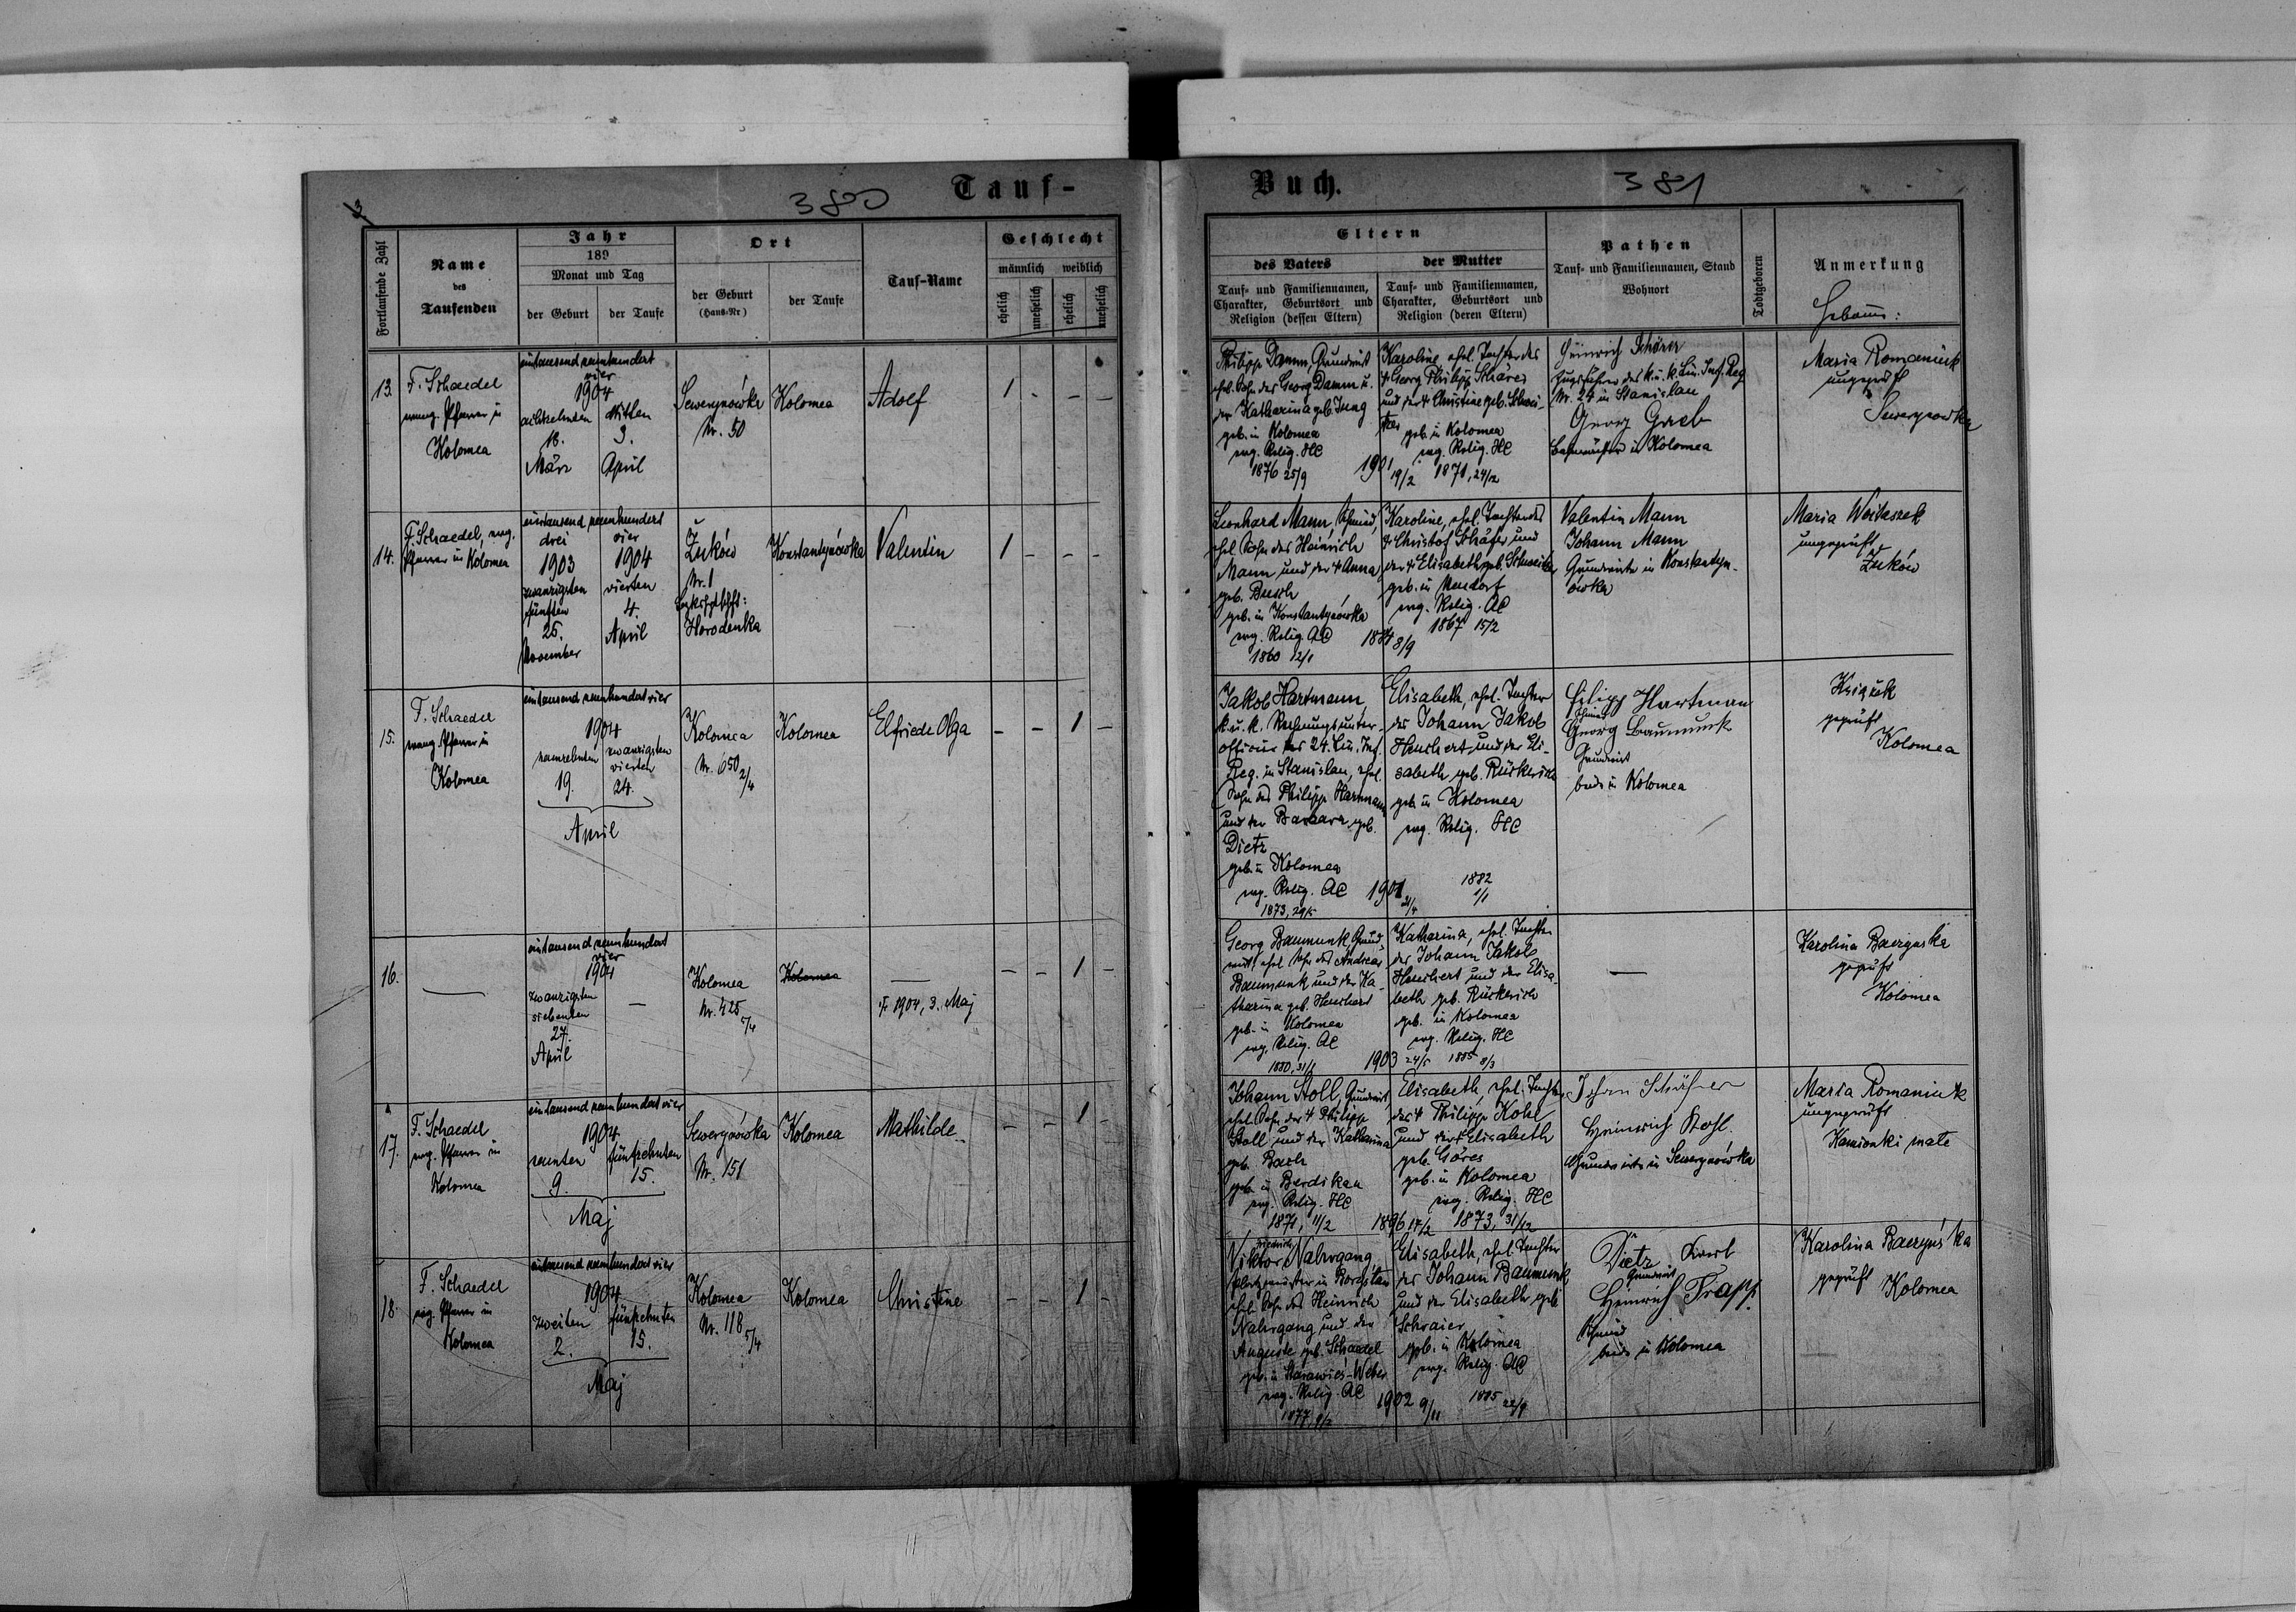 3
380
Tauf-
Fortlaufende Zahl
Name
des
Taufenden
Jahr
189
Monat und Tag
der Geburt
der Taufe
Ort
der Geburt
(Haus-Nr)
der Taufe
Tauf-Name
Geschlecht
männlich
weiblich
ehelich
unehelich
ehelich
unehelich
13.
F. Schaedel
evang. Pfarrer in
Kolomea
eintausend neunhundert
vier
1904
achtzehnten
18.
März
dritten
3.
April
Sewerynówka
Nr. 50
Kolomea
Adolf
1 - - -
14.
F. Schaedel, evg.
Pfarrer in Kolomea
eintausend neunhundert
drei
1903
zwanzigsten
fünften
25.
November
vier
1904
vierten
4.
April
Żuków
Nr. 1
Horodenka
Konstantynówka
Valentin
1 - - -
15.
F. Schaedel
evang. Pfarrer in
Kolomea
eintausend neunhundert vier
1904
neunzehnten
19.
zwanzigsten
vierten
24.
April
Kolomea
Nr. 650 2/4
Kolomea
Elfriede Olga
- - 1 -
16.
—
eintausend neunhundert
vier
1904
zwanzigsten
siebenten
27.
April
—
Kolomea
Nr. 425 5/4
Kolomea
—
† 1904, 3. Maj
- - 1 -
17.
F. Schaedel
evg. Pfarrer in
Kolomea
eintausend neunhundert vier
1904
neunten
9.
fünfzehnten
15.
Maj
Sewerynówka
Nr. 151
Kolomea
Mathilde
- - 1 -
18.
F. Schaedel
evg. Pfarrer in
Kolomea
eintausend neunhundert vier
1904
zweiten
2.
fünfzehnten
15.
Maj
Kolomea
Nr. 118 5/4
Kolomea
Christine
- - 1 -
Buch.
381
Eltern
des Vaters
Tauf- und Familiennamen,
Charakter, Geburtsort und
Religion (dessen Eltern)
der Mutter
Tauf- und Familiennamen,
Charakter, Geburtsort und
Religion (deren Eltern)
Pathen
Tauf- und Familiennamen, Stand
Wohnort
Todtgeboren
Anmerkung
Hebamme:
Philipp Damm, Grundwirt
ehel. Sohn des Georg Damm u.
der Katharina geb. Jung
geb. in Kolomea
evg. Relig. HC
1876 25/9
1901 19/2
Karoline, ehel. Tochter des
† Georg Philipp Schärer
und der † Christine geb. Schwei-
tzer
geb. in Kolomea
evg. Relig. HC
1871, 24/12
Heinrich Schärer
Zugsführer des k.u.k. Lin. Inf. Reg
Nr. 24 in Stanislau
Georg Greb
Bahnwächter in Kolomea
Maria Romaniuk
ungeprüft
Sewerynowka
Leonhard Mann, Schmied,
ehel. Sohn des Heinrich
Mann und der † Anna
geb. Busch
geb. in Konstantynówka
evg. Relig. AC
1860 12/1
8/9
Karoline, ehel. Tochter des
† Christof Schäfer und
der † Elisabeth geb. Schweitzer
geb. in Neudorf
evg. Relig. AC
1867 15/2
Valentin Mann
Johann Mann
Grundwirte in Konstantyn-
ówka
Maria Woitaszek
ungeprüft
Żuków
Jakob Hartmann,
k.u.k. Rechnungsunter-
officier des 24. Lin. Inf.
Reg. in Stanislau, ehel.
Sohn des Philipp Hartmann
und der Barbara geb.
Dietz
geb. in Kolomea
evg. Relig. AC
1873, 29/5
1901 21/4
Elisabeth, ehel. Tochter
des Johann Jakob
Heuchert und der Eli-
sabeth geb. Rückerich
geb. in Kolomea
evg. Relig. HC
1882
1/1
Filipp Hartman
Schmied
Georg Baumunk
Grundwirt
beide in Kolomea
Książek
geprüft
Kolomea
Georg Baumunk, Grund-
wirt, ehel. Sohn des Andreas
Baumunk und der Ka-
tharina geb. Heuchert
geb. in Kolomea
evg. Relig. AC
1880, 31/1
1903 24/5
Katharina, ehel. Tochter
des Johann Jakob
Heuchert und der Elisa-
beth geb. Rückerich
geb. in Kolomea
evg. Relig. HC
1885 8/3
—
Karolina Baczyńska
geprüft
Kolomea
Johann Stoll, Grundwirt
ehel. Sohn des † Philipp
Stoll und der Katharina
geb. Bach
geb. in Berdikau
evg. Relig. HC
1871, 11/2
1896 17/2
Elisabeth, ehel. Tochter
des † Philipp Kohl
und der † Elisabeth
geb. Göres
geb. in Kolomea
evg. Relig. HC
1873, 31/12
Johan Schäfer
Heinrich Kohl
Grundwirte in Sewerynówka
Maria Romaniuk
ungeprüft
Kamionki małe
Viktor Nahrgang
Friedrich
ehel. Sohn des Heinrich
Nahrgang und der
Auguste geb. Schaedel
evg. Relig. AC
1877, 9/2
1902 9/11
Elisabeth, ehel. Tochter
des Johann Baumunk
und der Elisabeth geb.
Schraier
geb. in Kolomea
evg. Relig. AC
1885 22/9
Dietz Karl
Grundwirt
Heinrich Trapp
Schmied
beide in Kolomea
Karolina Baczyńska
geprüft
Kolomea